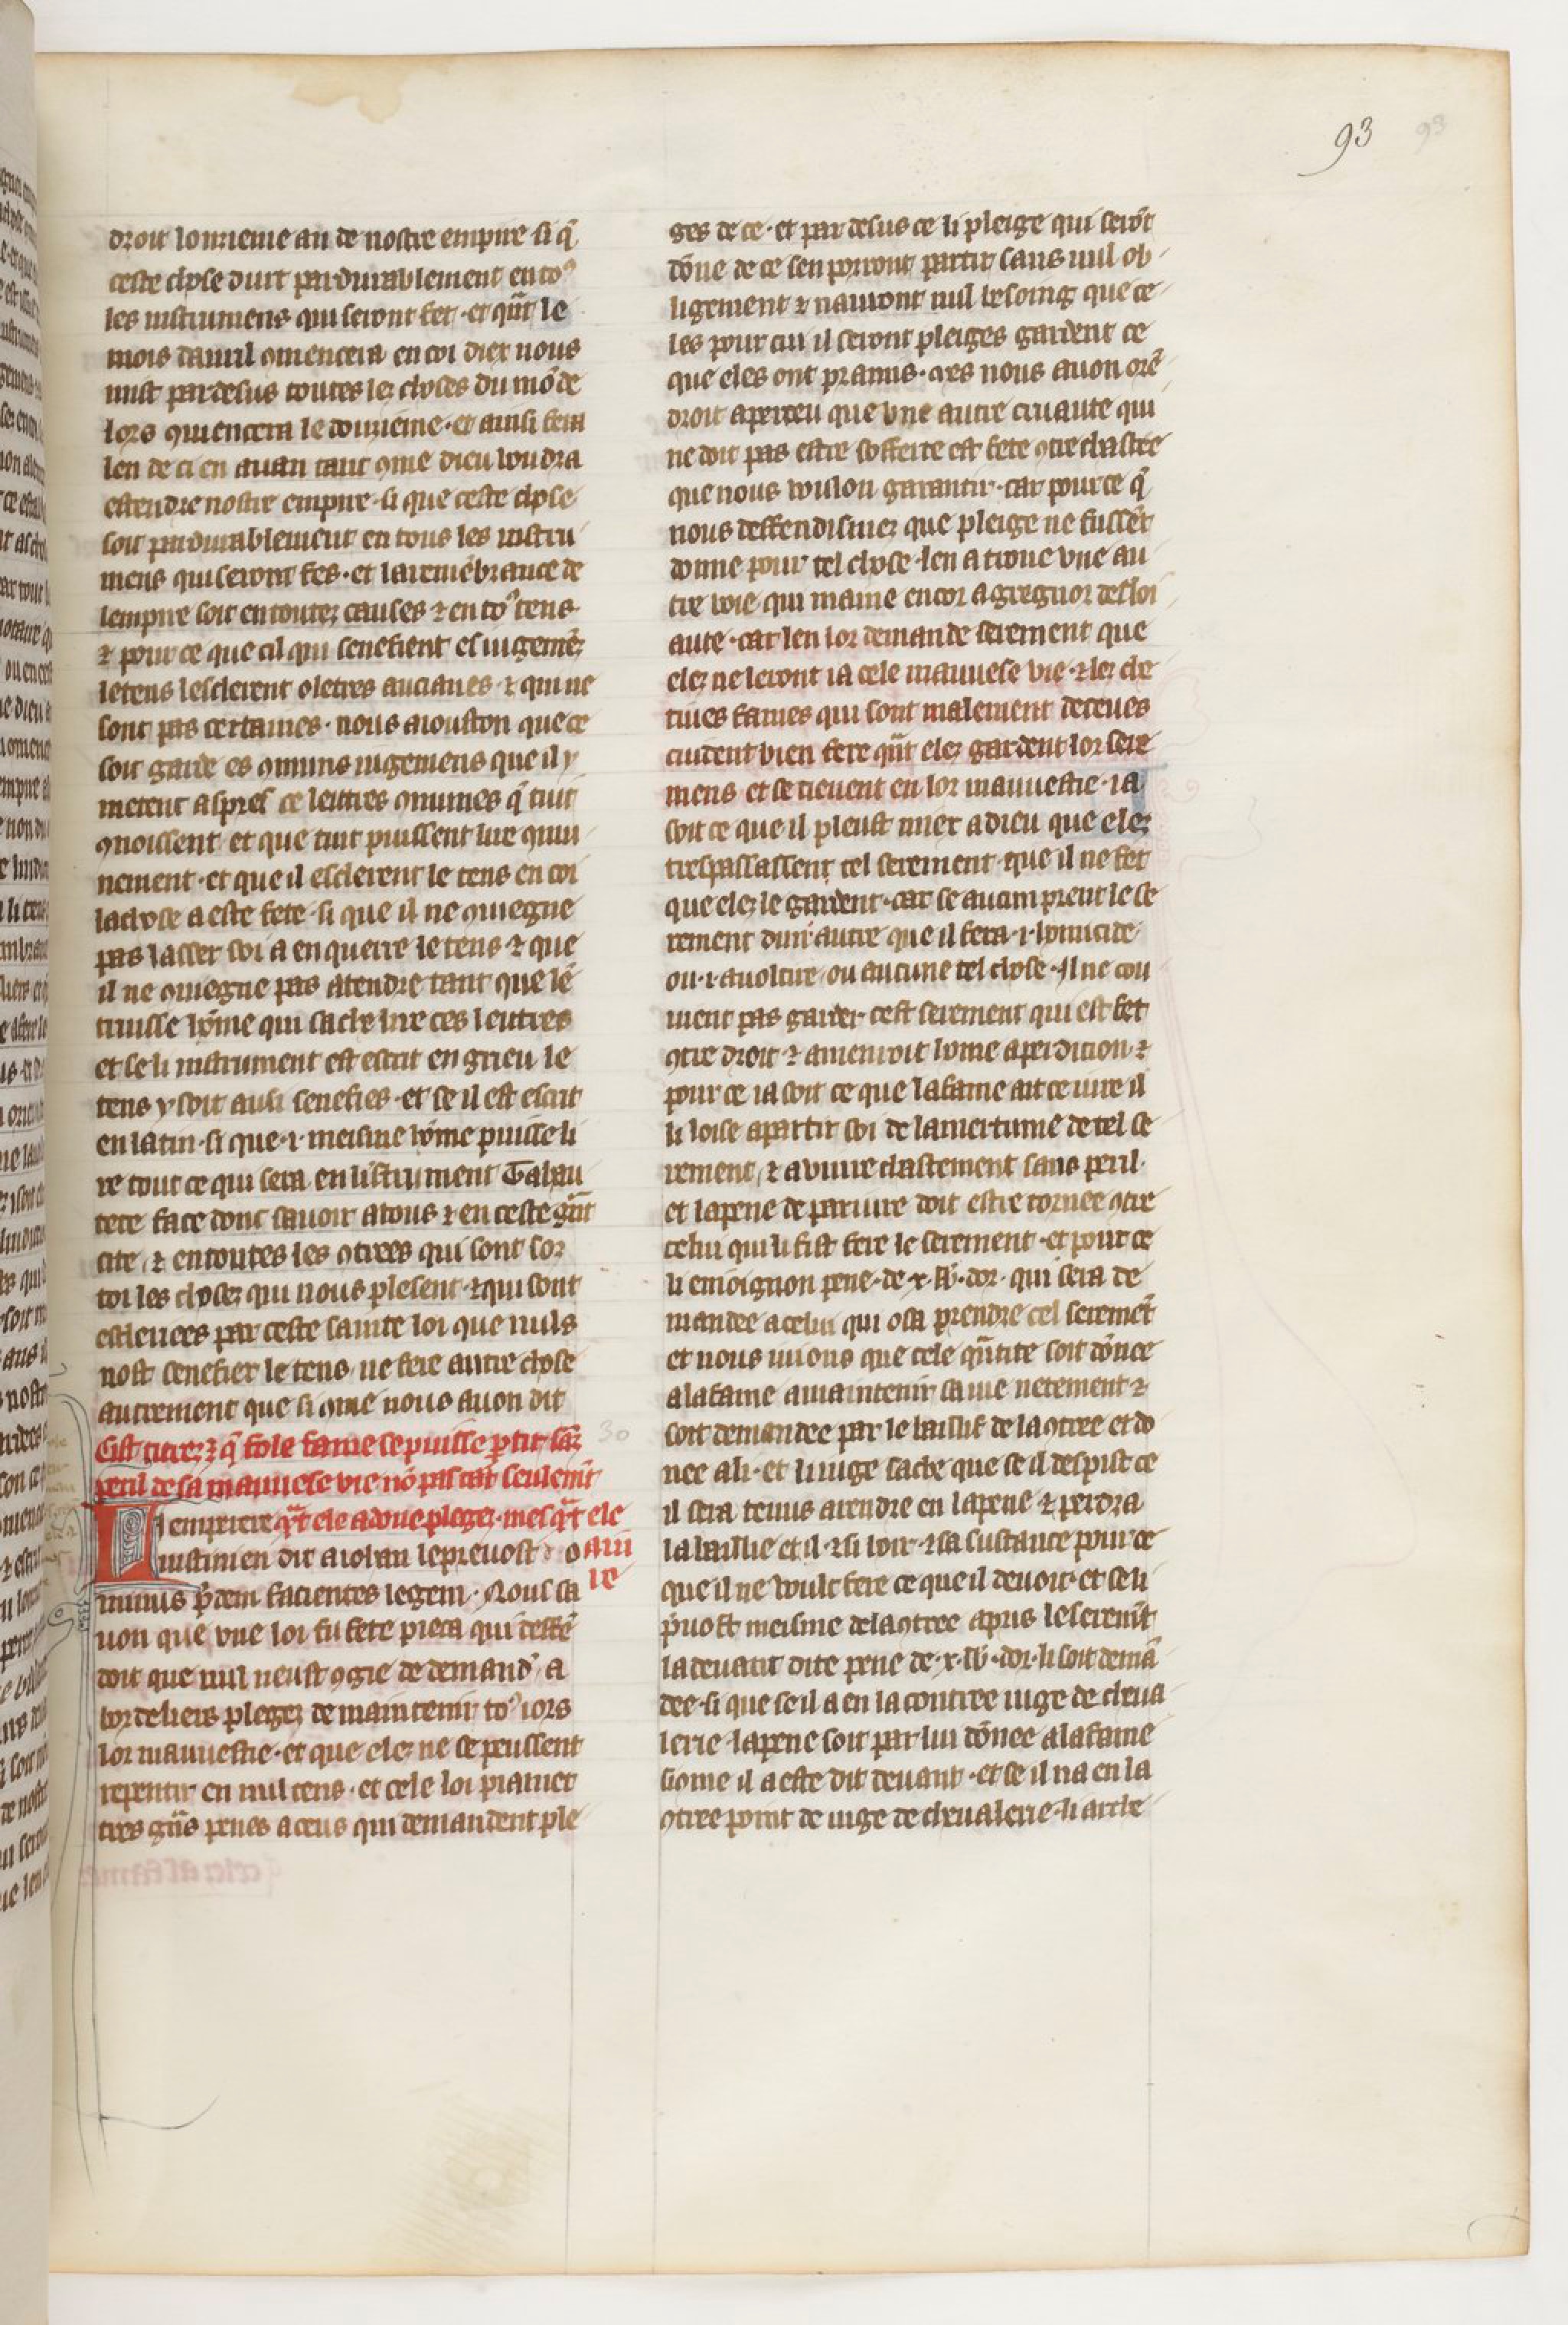 93
droit lonzieme an de nostre empire si q̃
ceste chose duit pardurablement en toꝰ
les instrumens qui seront fet · et qñt le
mois dauril ꝯmencera en coi diex nous
mist pardesus toutes lez choses du mõde
lors ꝯmencera le douzieme · et ainsi fera
len de ci en auan tant ꝯme dieu voudra
estendre nostre empire · si que ceste chose
soit pardurablement en tous les instru
mens qui seront fes · et la remẽbrance de
lempire soit en toutez causes ⁊ en toꝰ tens
⁊ pour ce que cil qui senefient es iugemẽz
le tens lesclerent o letres ancianes ⁊ qui ne
sont pas certaines · nous aiouston que ce
soit garde es ꝯmuns iugemens que il y
metent aspres ce leittres ꝯmunes q̃ tuit
ꝯnoissent et que tuit puissent lire ꝯmu
nement · et que il esclerent le tens en coi
la chose a este fete · si que il ne ꝯuiegne
pas lasser soi a enquerre le tens ⁊ que
il ne ꝯuiegne pas atendre tant que lẽ
truisse hõme qui sache lire ces leittres
et se li instrument est escrit en grieu le
tens y soit ausi senefies · et se il est escrit
en latin · si que · i · meisme hõme puisse li
re tout ce qui sera en listrument Ta hau
tece face donc sauoir a tous ⁊ en ceste gñt
cite ⁊ en toutes les ꝯtrees qui sont soz
toi les chosez qui nous plesent ⁊ qui sont
escleriees par ceste sainte loi que nuls
nost senefier le tens ne fere autre chose
autrement que si ꝯme nous auon dit
30
Cist titrez ⁊ q̃ fole fame se puisse ꝑtir sãz
peril de sa mauuese vie nõ pas tãt seulemẽt
L i emperiere qñt ele a done plegez · mes qñt ele
iustinien dit a iohan le preuost · o a iu
minus pridem facientes legem · Nous sa re
uon que vne loi fu fete pieca qui deffẽ
doit que nul neust ꝯgie de demandꝰ a
bordeliers plegez de maintenir toꝰ iors
lor mauuestie · et que elez ne se peussent
repentir en nul tens · et cele loi pramet
tres grãs penes a ceus qui demandent ple
ges de ce · et par desus ce li pleige qui serõt
dõne de ce sen porront partir sans nul ob
ligement ⁊ nauront nul besoing que ce
les pour cui il seront pleiges gardent ce
que eles ont pramis · mes nous auon orẽ
droit aperceu que vne autre cruaute qui
ne doit pas estre sofferte est fete ꝯtre chastee
que nous voulon garantir · car pour ce q̃
nous deffendismez que pleige ne fussẽt
donne pour tel chose · len a troue vne au
tre voie qui maine encor a gregnor desloi
aute · car len lor demande serement que
elez ne leront ia cele mauuese vie · ⁊ lez che
tiues fames qui sont malement deceues
cuident bien fere qñt elez gardent lor sere
mens et se tienent en lor mauuestie · ia
soit ce que il pleust miex a dieu que elez
trespassassent tel serement que il ne fet
que elez le gardent · car se aucun prent le se
rement dun autre que il fera · i · homicide
ou · i · auoltire ou aucune tel chose · Il ne cou
uient pas garder cest serement qui est fet
ꝯtre droit ⁊ amenroit lome a perdicion ⁊
pour ce ia soit ce que la fame ait ce iure il
li loise a partir soi de lamertume de tel se
rement ⁊ a viure chastement sans peril
et la pene de pariure doit estre tornee ꝯtre
celui qui li fist fere le serement · et pour ce
li enioignon pene · de · x · lb̃ · dor · qui sera de
mandee a celui qui osa prendre cel seremẽt
et nous iuions que cele qñtite soit dõnee
a la fame a maintenir sa uie netement ⁊
soit demandee par le baillif de la ꝯtree et do
nee a li · et li iuge sache que se il despist ce
il sera tenus a rendre en la pene ⁊ perdra
la baillie et il ⁊ si hoir ⁊ sa sustance pour ce
que il ne voult fere ce que il deuoit · et se li
p̃uost meisme de la ꝯtree a pris le seremẽt
la deuant dite pene de · x · lb̃ · dor · li soit demã
dee · si que se il a en la contree iuge de cheua
lerie · la pene soit par lui dõnee a la fame
si ꝯme il a este dit deuant · et se il na en la
ꝯtree point de iuge de cheualerie · li arche